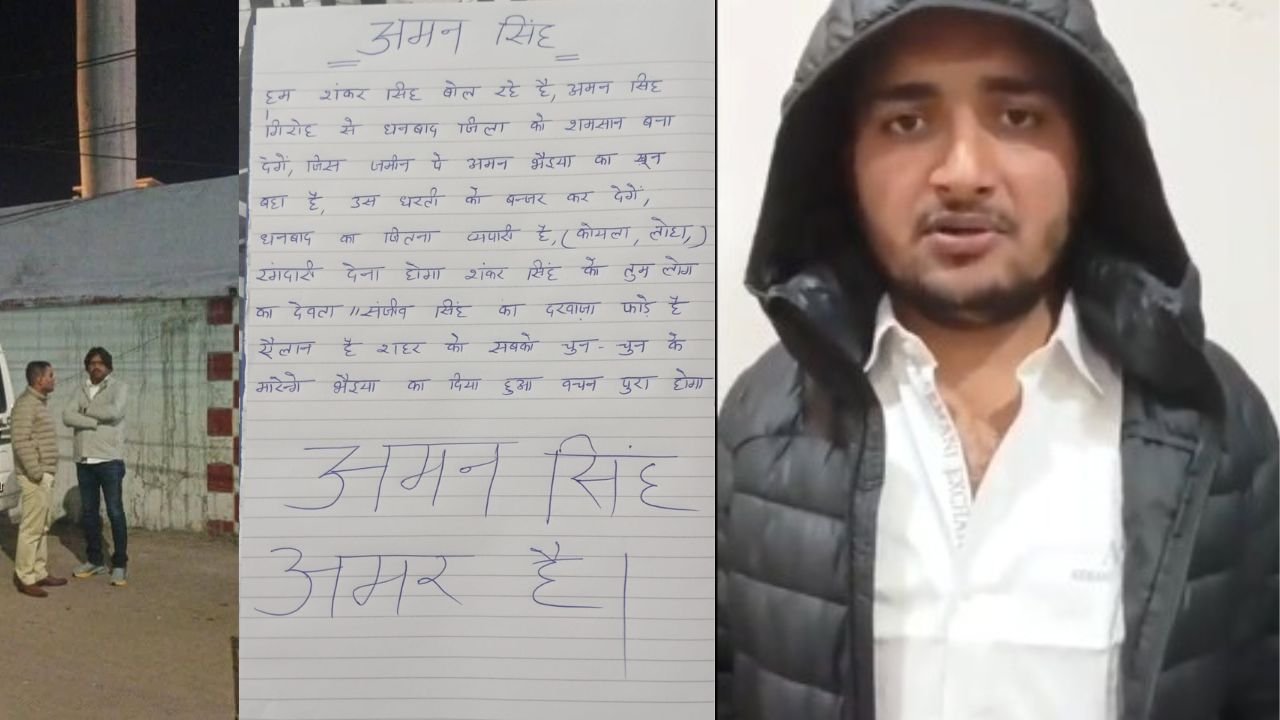 अमन सिंह
हम शंकर सिंह बोल रहे है, अमन सिंह
गिरोह से धनबाद जिला को शमसान बना
देगें, जिस जमीन पे अमन भैइया का खून
बहा है, उस धरती को बन्जर कर देगें,
धनबाद का जितना व्यपारी है, (कोयला, लोहा,)
रंगदारी देना होगा शंकर सिंह को तुम लोग
का देवता "संजीव सिंह का दरवाजा फोड़े है
ऐलान है शहर को सबको चुन-चुन के
मारेन्गे भैइया का दिया हुआ वचन पुरा होगा
अमन सिंह
अमर है।
ARMANI EXCHAN